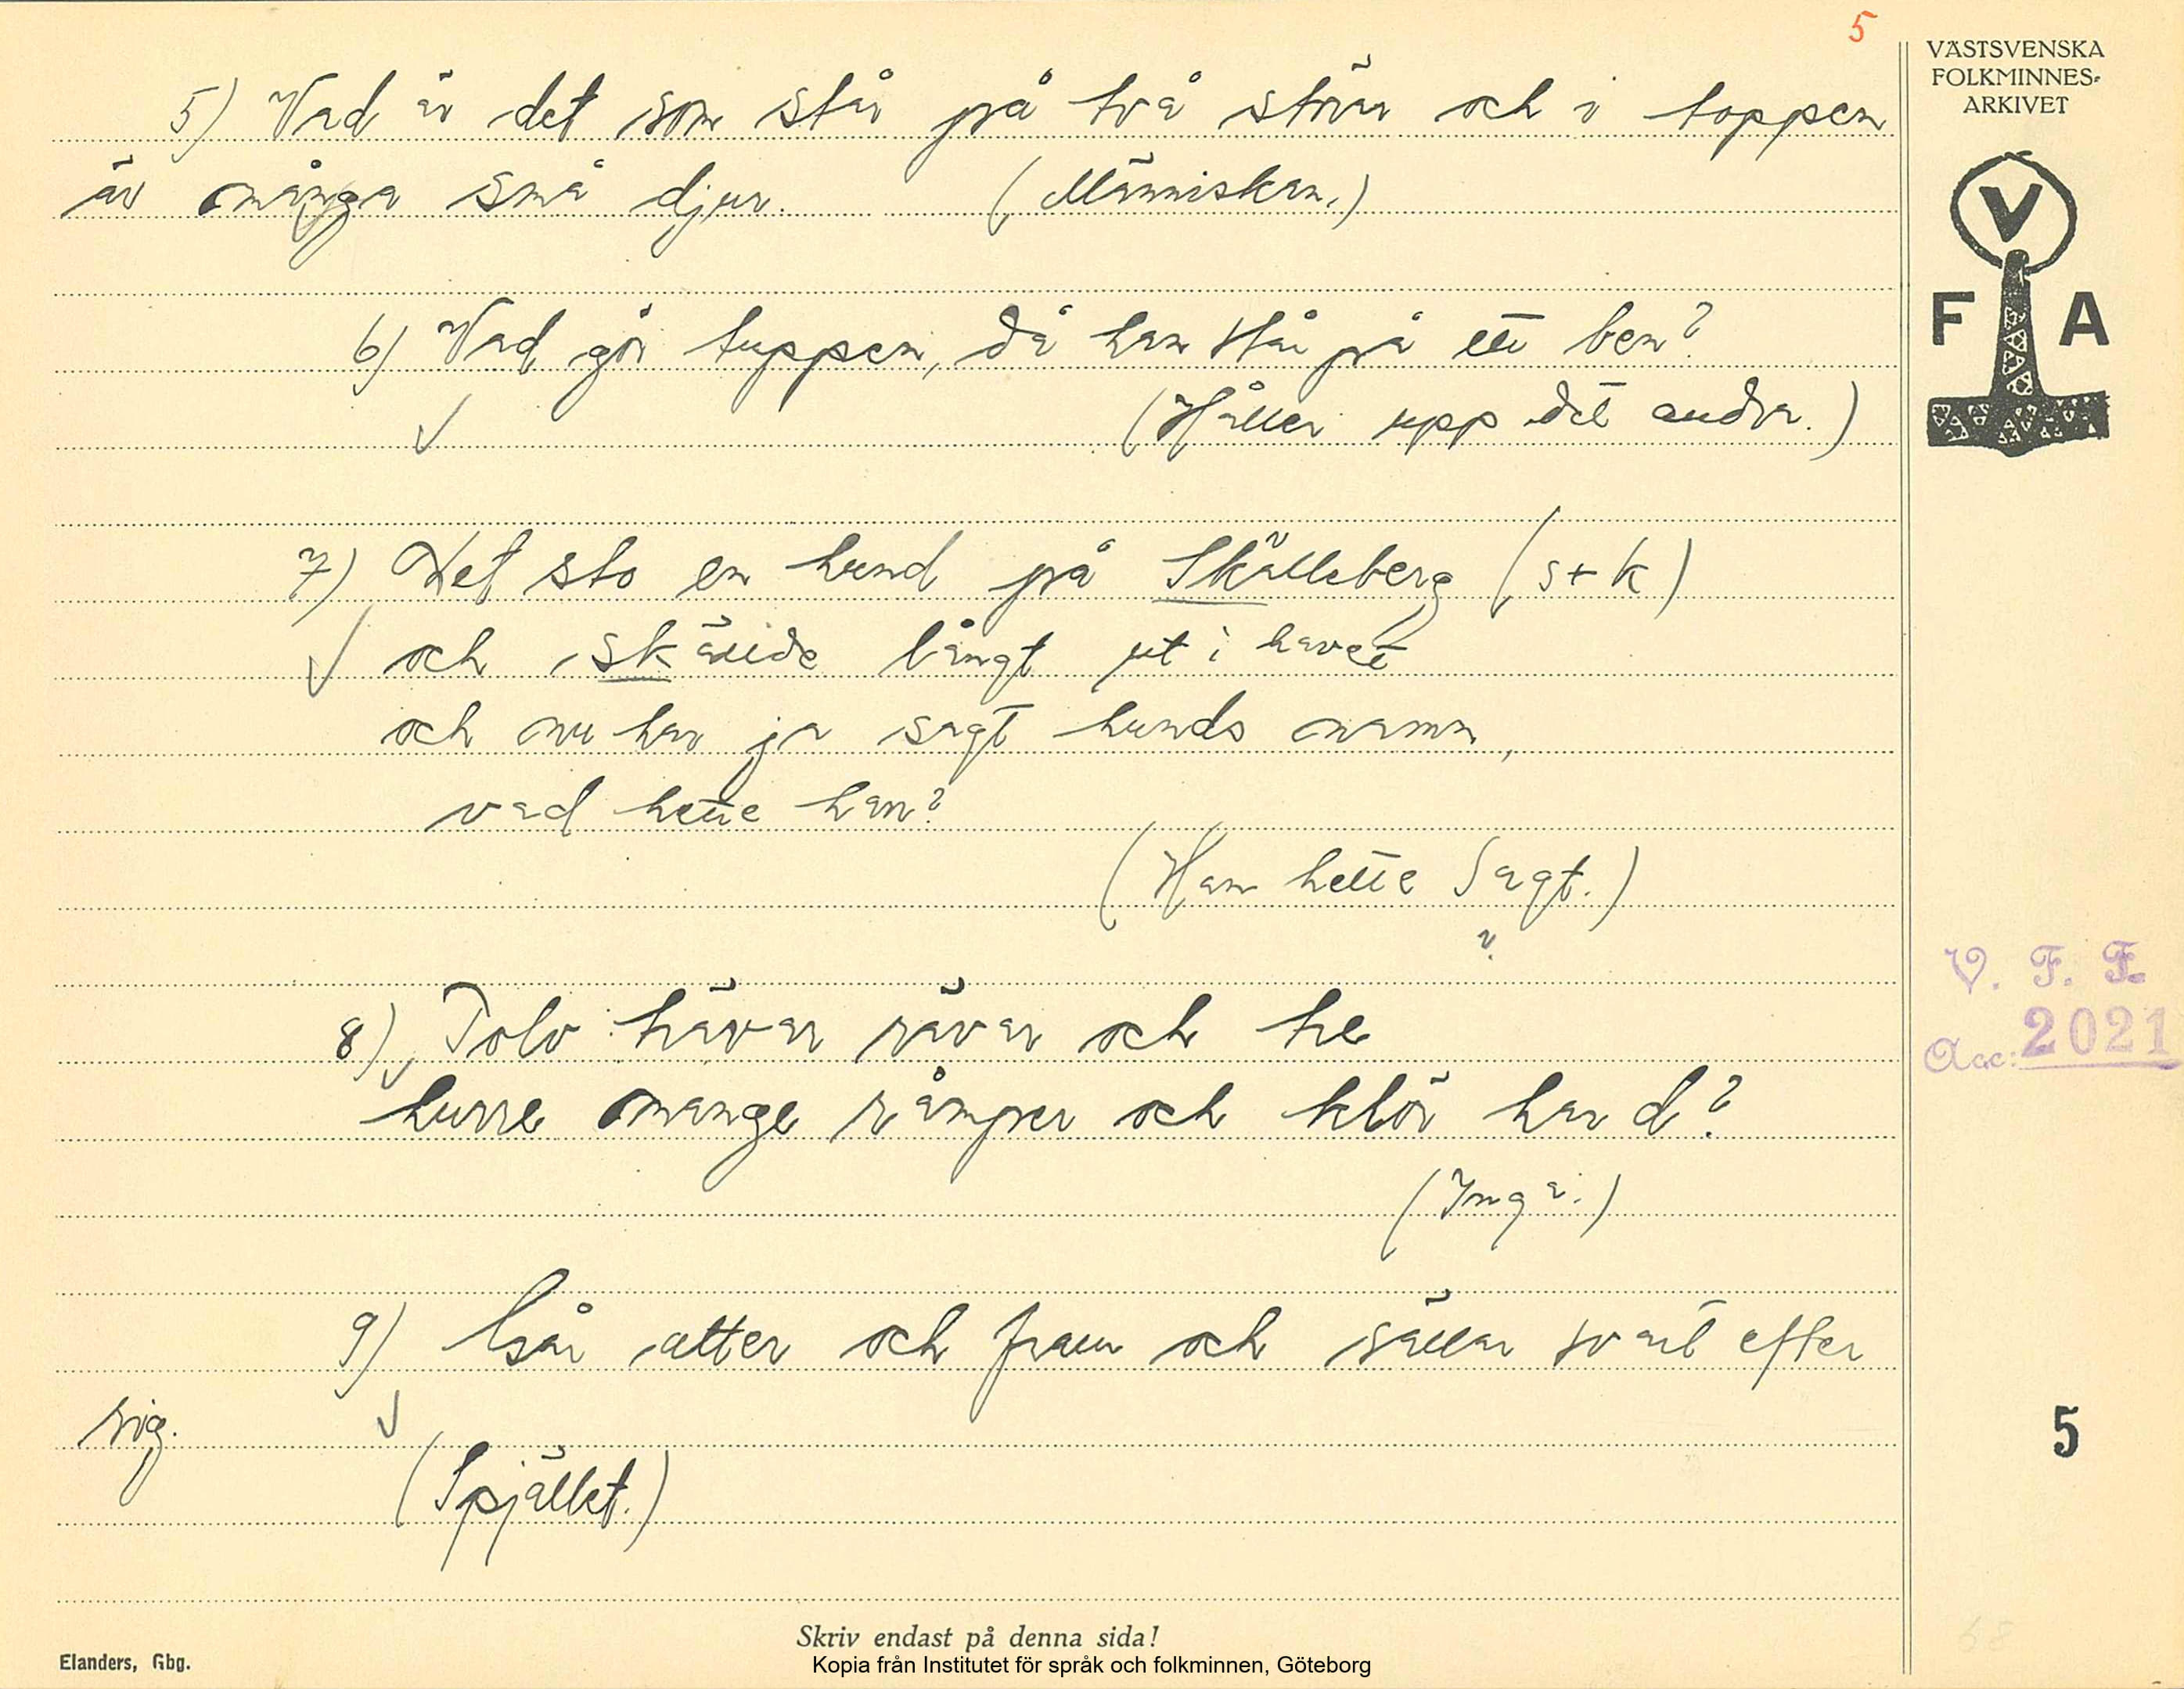 5
VÄSTSVENSKA
FOLKMINNES-
ARKIVET
V
F A
5) Vad är det som står på två störar och i toppen
är många små djur. (Människan.)
6) Vad gör tuppen, då han står på ett ben?
(Håller upp det andra.)
7) Det sto en hund på Skälleberg (s+k)
och skällde långt ut i havet
och nu har ja sagt hunds namn,
vad hette han?
(Han hette Sagt.)
?
8) Tolv rävar och tre
hurre mange rämper och klör har d?
(Inga.)
9) Går atter och fram och sätter svart efter
sig.
(Spjället.)
V. F. F.
Acc: 2021
5
68
Skriv endast på denna sida!
Elanders, Gbg.
Kopia från Institutet för språk och folkminnen, Göteborg